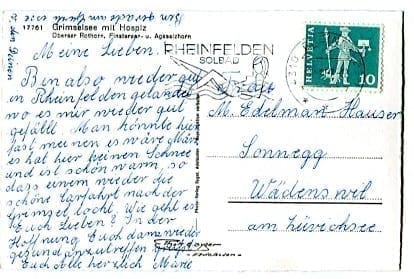 17761 Grimselsee mit Hospiz
Oberaar Rothorn, Finsteraar- u. Agassizhorn
Meine Lieben.
Bin also wieder gut
in Rheinfelden gelandet
wo es mir wieder gut
gefällt. Man könnte hier
fast meinen es wäre März
es hat hier keinen Schnee
und ist schön warm, so
dass einem wieder die
schöne Carfahrt nach der
Grimsel lockt. Wie geht es
Euch Lieben? In der
Hoffnung Euch dann wieder
gesund anzutreffen grüsst
Euch alle herzlich
RHEINFELDEN
SOLBAD
HELVETIA
10
M. Edelmann Hauser
Sonnegg
Wädenswil
am Zürichsee